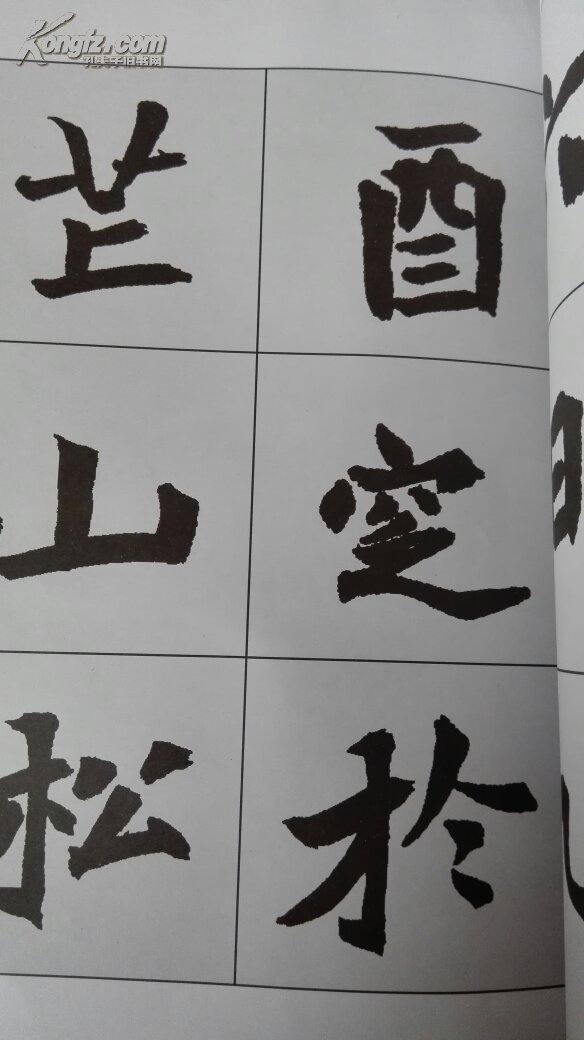 Kongfz.com
孔夫子旧书网
酉窆於
芒山松